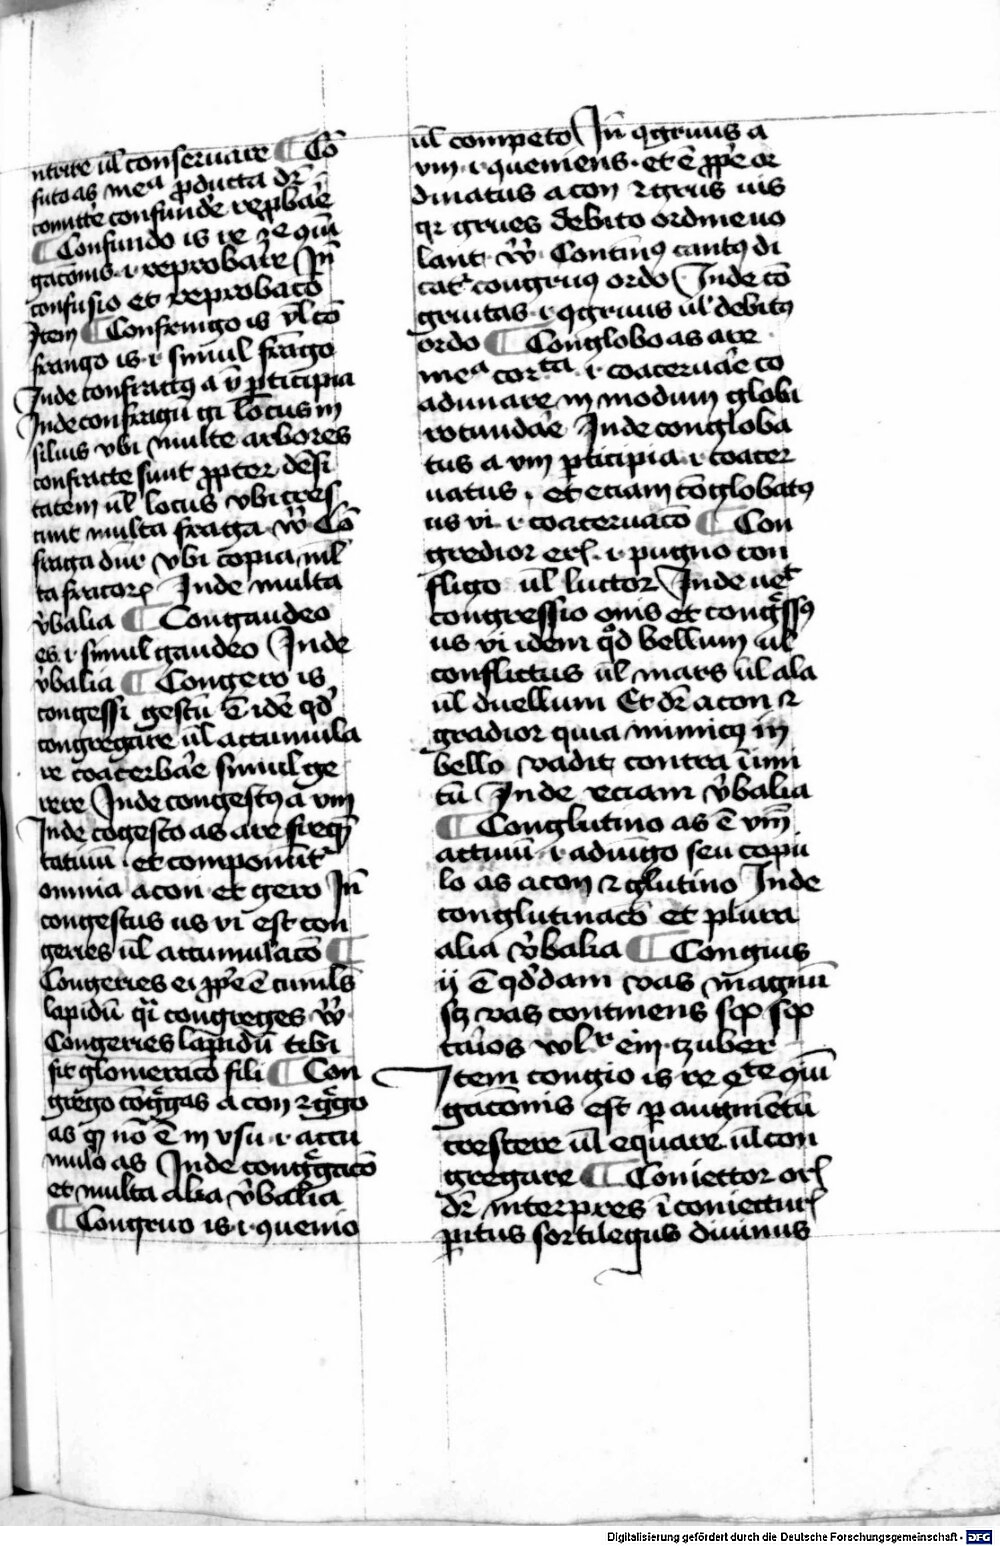 ntrire ul̄ conseruare ¶ Cō
futo as meᵃ ꝓducta dr̄ i
conuīcte confundēre repbāre
¶ Confundo is re 3ᵉ ꝯiū
gacōnis .i. reprobare Jn̄
confusio et reprobacō
Jtem ¶ Confringo is ul̄ cō
frango is .i. simul frango
Jnde confractꝯ a ū ꝑticipia
Jnde confragū gi locus in
siluis vbi multe arbores
confracte sunt ꝓpter dēsi
tatem ul̄ locus vbi cres
cunt multa fraga vn̄ Cō
fraga dūr vbi copia mul̄
ta fractoꝝ Jnde multa
v̄balia ¶ Congaudeo
es .i. simul gaudeo Jnde
v̄balia ¶ Congero is
congessi gestū ē idē qd̄
congregare ul̄ accumula
re coacerbāre simul ge
rere Jnde congestꝯ a vm
Jnde cōgesto as are freq̄
tatiuū .et componūt̄
omnia a con et gero Jn̄
congestus us vi est con
geries ul̄ accumulacō ¶
Congeries ei ꝓpe ē cumulꝯ
lapidū qͥ congreges vn̄
Congeries lapidū tibi
sit glomeracō fili ¶ Con
grego cōgͣgas a con ⁊ gͣgo
as qͥ nō ē in vsu .i. accu
mulo as Jnde congͣgacō
et multa alia v̄balia
¶ Congruo is .i. ꝯuenio
ul̄ competo Jn̄ ꝯgruus a
vm .i. ꝯueniens .et ē ꝓpe or
dinatus a con ⁊ grus uis
qr grues debito ordine uo
lant vn̄ Continuꝯ cantꝯ di
catͬ congruꝯ ordo Jnde cō
gruitas .i. ꝯgruus ul̄ debitꝯ
ordo ¶ Conglobo as are
meᵃ corᵗᵃ .i. coaceruāre co
adunare in modum globi
rotundāre Jnde congloba
tus a vm ꝑticipia .i. coacer
uatus . et eciam cōglobatꝯ
us vi .i. coaceruacō ¶ Con
gredior er̄ .i. pugno con
fligo ul̄ luctor Jnde ueᵗ
congressio onis et congͤssꝯ
us vi idem qd̄ bellum ul̄
conflictus ul̄ mars ul̄ ala
ul̄ duellum Et dr̄ a con ⁊
gradior quia inimicꝯ in
bello vadit contra inimi
cū Jnde eciam v̄balia
¶ Conglutino as ē vm̄
actiuū .i. adiūgo seu copu
lo as a con ⁊ glutino Jnde
conglutinacō et plura
alia v̄balia ¶ Congius
ij ē qd̄dam vas magnū
sꝫ vas continens sex sex
tar̄os wlͬ ein zuber
Jtem congio is re 4ᵗᵉ ꝯiū
gacōnis est ꝑ augmētū
crescere ul̄ equare ul̄ con
gregare ¶ Coniector or̄
dr̄ interpres ī coniectur̄
ꝑitus sortilegus diuinus
Digitalisierung gefördert durch die Deutsche Forschungsgemeinschaft - DFG